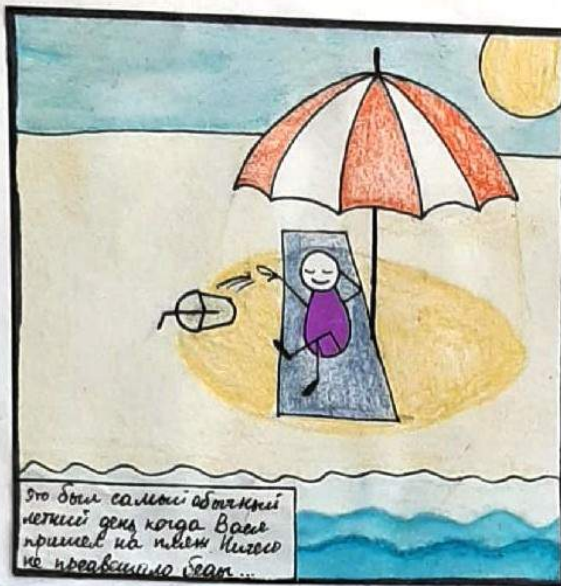 Это был самый обычный
летний день когда Вася
пришел на пляж Ничего
не предвещало беды...